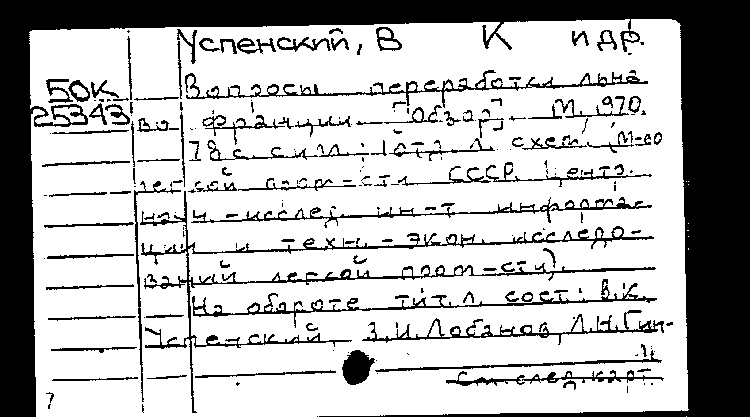 Успенский, В К и др.
50К
25343
Вопросы переработки льна
во Франции. [Обзор]. М., 1970.
78 с. с илл.; 1 отд. л. схем. (М-во
легкой пром-сти СССР. Центр.
науч.-исслед. ин-т информа-
ции и техн.-экон. исследо-
ваний легкой пром-сти).
На обороте тит. л. сост.: В.К.
Успенский, З.И. Лобанов, Л.Н. Гин-
См. след. карт.
7